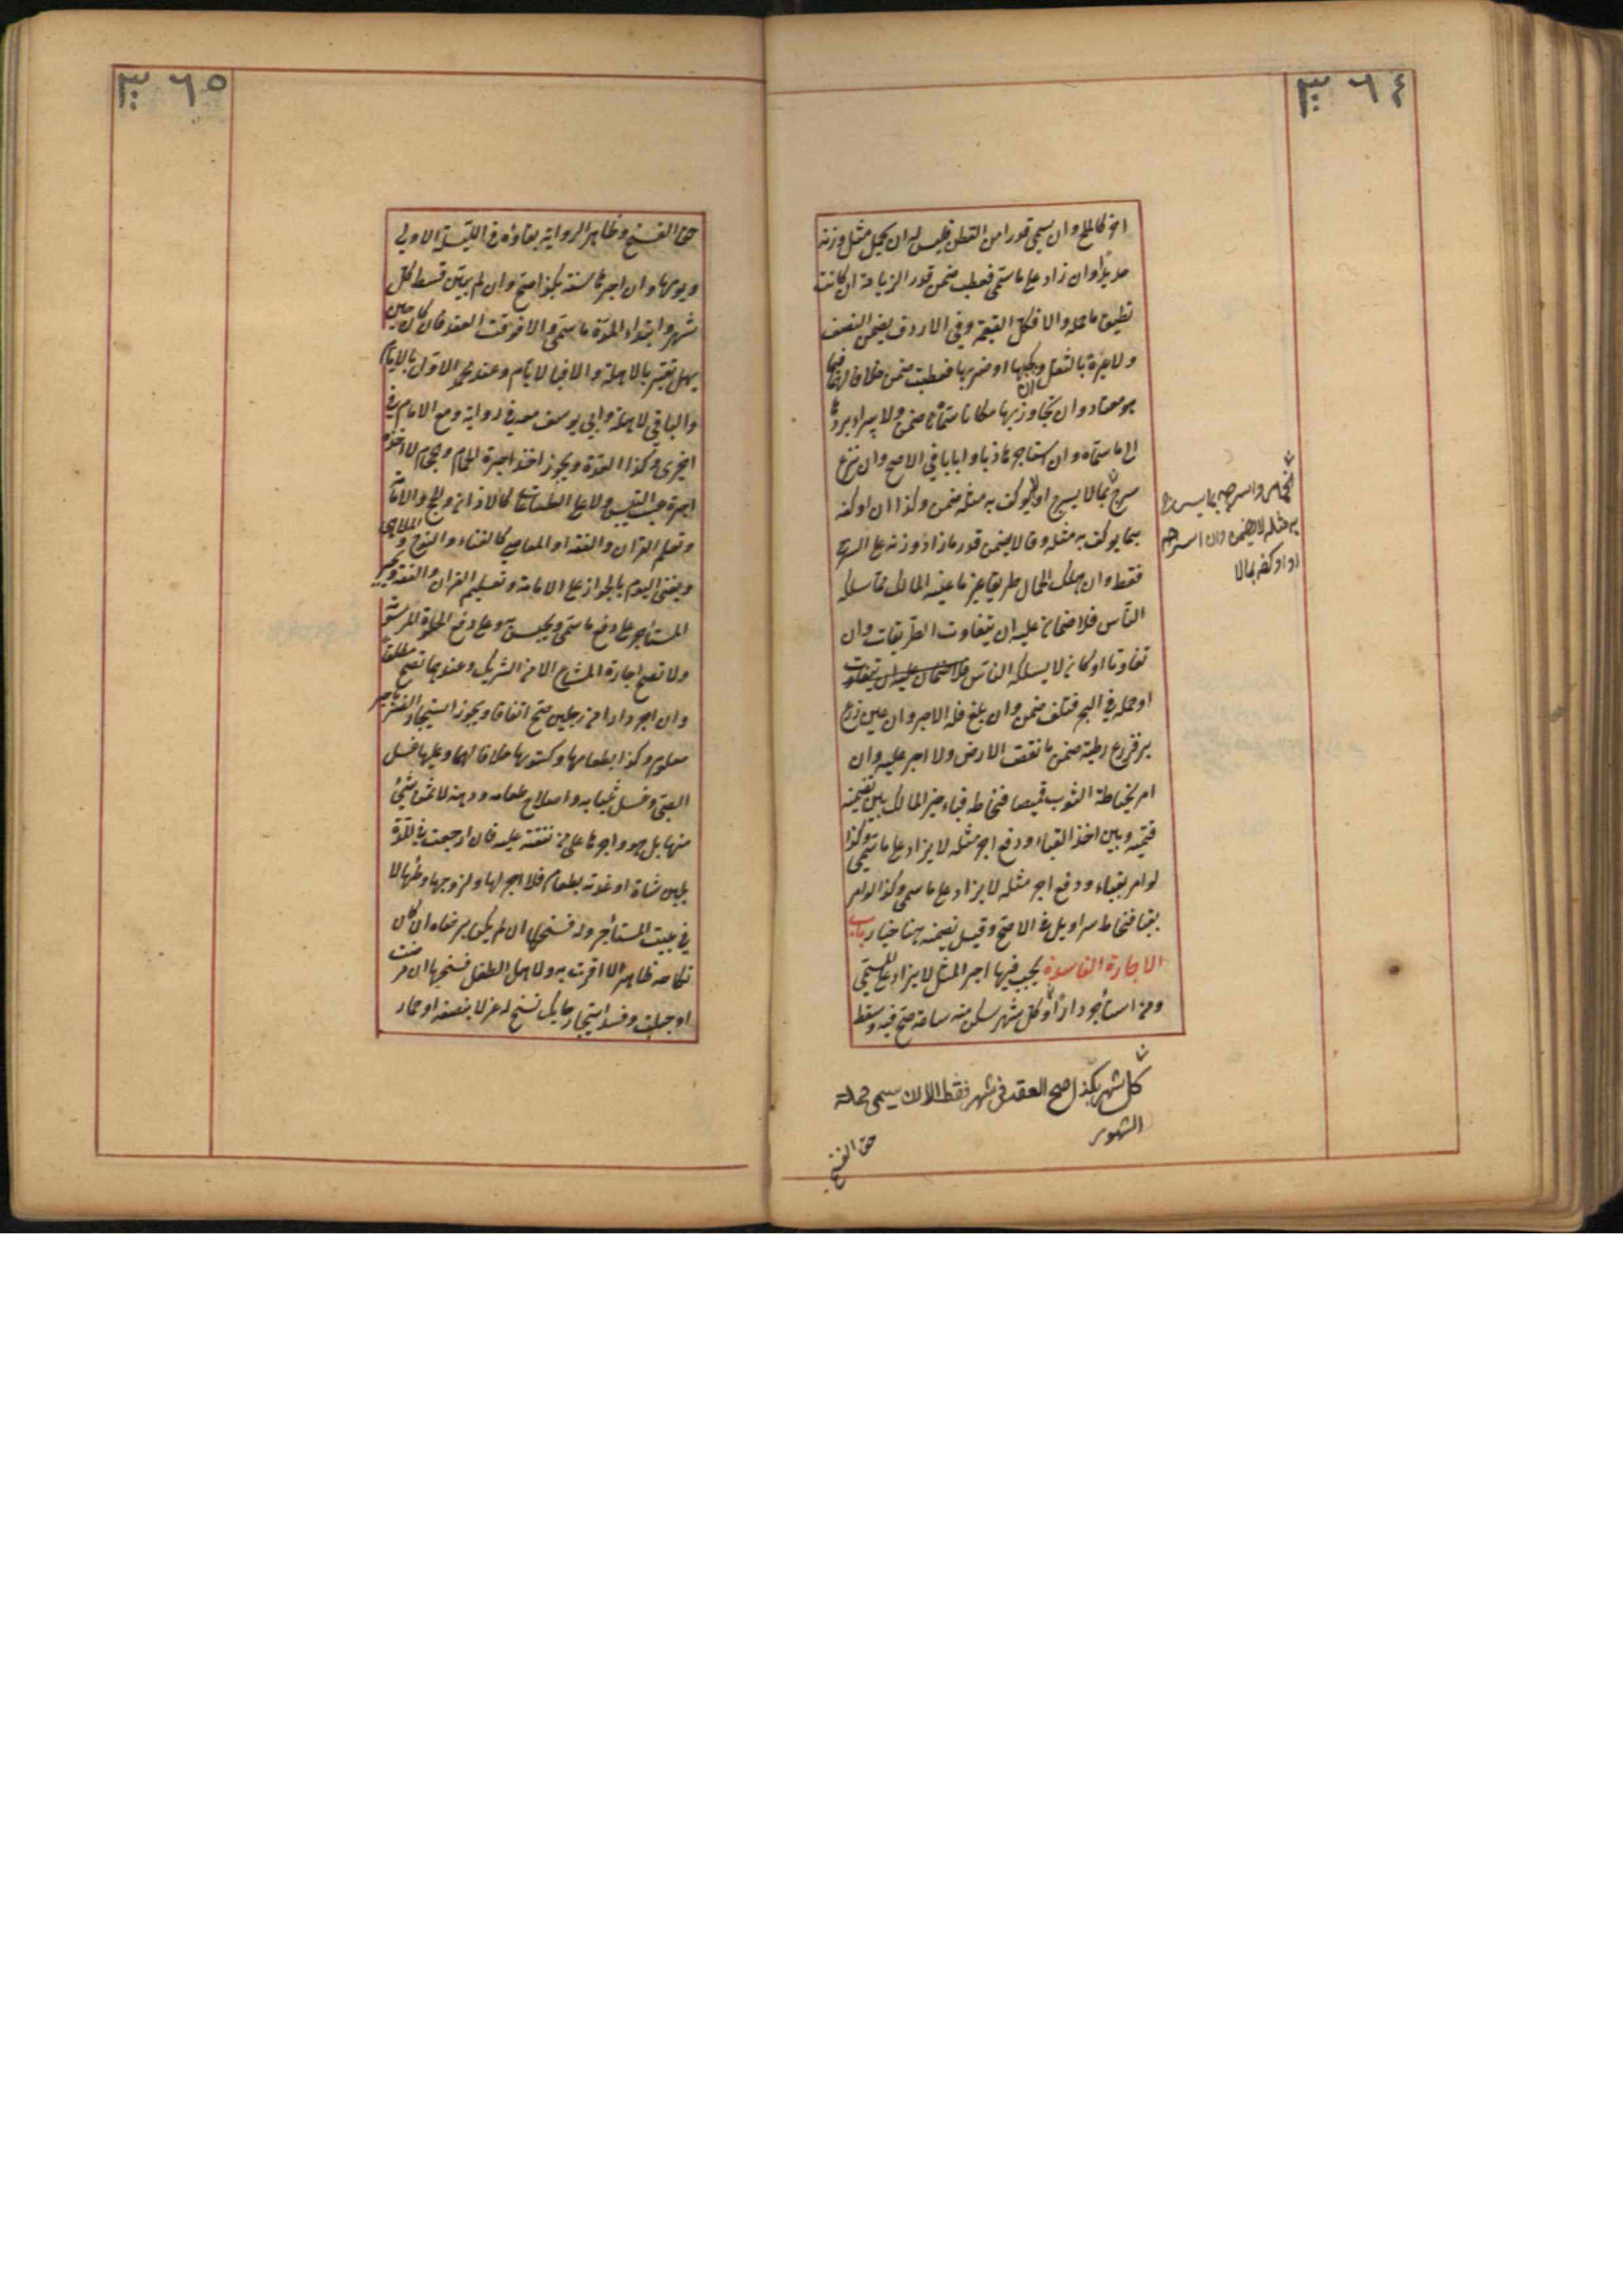 ٣٦٤
اضر كالملح وان سمى قدرا من القطن فليس له ان يحمل مثل وزنه
حديدا وان زاد على ما سمى فعطب ضمن قدر الزيادة ان كانت
تطيق ما حمله والا فكل القيمة وفي الارداف يضمن النصف
ولا عبرة بالثقل وان كبحها او ضربها فعطبت ضمن خلافا لهما فيما
هو معتاد وان تجاوز بها مكانا سماه ضمن ولا يبرأ بردها
الى ما سماه وان استأجرها ذهابا وايابا في الاصح وان نزع
سرج بما لا يسرج او لا يوكف به مثله ضمن وكذا ان اوكفه
بما يوكف به مثله وقالا يضمن قدر ما زاد وزنه على السرج
فقط وان سلك الحمال طريقا غير ما عينه المالك مما يسلكه
الناس فلا ضمان عليه ان لم يتفاوت الطريقان وان
تفاوتا او كان لا يسلكه الناس فلا ضمان عليه ان يتفاوت
او حمله في البحر فتلف ضمن وان بلغ فله الاجر وان عين زرع
بر فزرع رطبة ضمن ما نقصت الارض ولا اجر عليه وان
امر بخياطة الثوب قميصا فخاطه قباء خير المالك بين تضمينه
قيمته وبين اخذ القباء ودفع اجر مثله لا يزاد على ما سمى وكذا
لو امر بقباء ودفع اجر مثله لا يزاد على ما سمى وكذا لو امر
بقبا فخاط سراويل في الاصح وقيل تضمينه هنا خيار باب
الاجارة الفاسدة يجب فيها اجر المثل لا يزاد على المسمى
ومن استأجر دارا وكل شهر سكن منه ساعة صح فيه وسقط
الحمار واسرجه بما يسرج
به مثله لا يضمن وان اسرجه
او اوكفه بما لا
كل شهر بكذا صح العقد في شهر فقط الا ان يسمى جملة
الشهور
حق الفسخ
٣٦٥
حق الفسخ وظاهر الرواية بقاؤه في الليلة الاولى
ويومها وان اجرها سنة بكذا صح وان لم يبين قسط كل
شهر وابتداء المدة ما سمى والا فوقت العقد فان كان حين
يهل تعتبر بالاهلة والا فبالايام وعند محمد الاول بالايام
والباقي بالاهلة وابي يوسف معه في رواية ومع الامام في
اخرى وكذا العدة ويجوز اخذ اجرة الحمام والحجام لا اخذ
اجرة عسب التيس ولا على الطاعات كالاذان والحج والامامة
وتعليم القرآن والفقه او المعاصي كالغناء والنوح والملاهي
ويفتى اليوم بالجواز على الامامة وتعليم القران والفقه ويجبر
المستأجر على دفع ما سمى ويحبس به وعلى دفع الحلوة المرسومة
ولا تصح اجارة المشاع الا من الشريك وعندهما تصح مطلقا
وان اجر دارا من رجلين صح اتفاقا ويجوز استيجار الظئر باجر
معلوم وكذا بطعامها وكسوتها خلافا لهما وعليها غسل
الصبي وغسل ثيابه واصلاح طعامه ودهنه لا ثمن شئ
منها بل هو واجرها على من نفقته عليه فان ارضعت في المدة
بلبن شاة او غذته بطعام فلا اجر لها ولزوجها وطئها لا
في بيت المستأجر وله فسخها ان لم يكن برضاه ان كان
نكاحه ظاهرا لا ان اقرت به ولاهل الطفل فسخها ان مرضت
او حبلت وفسد استيجار حايك لينسج له غزلا بنصفه او حمار